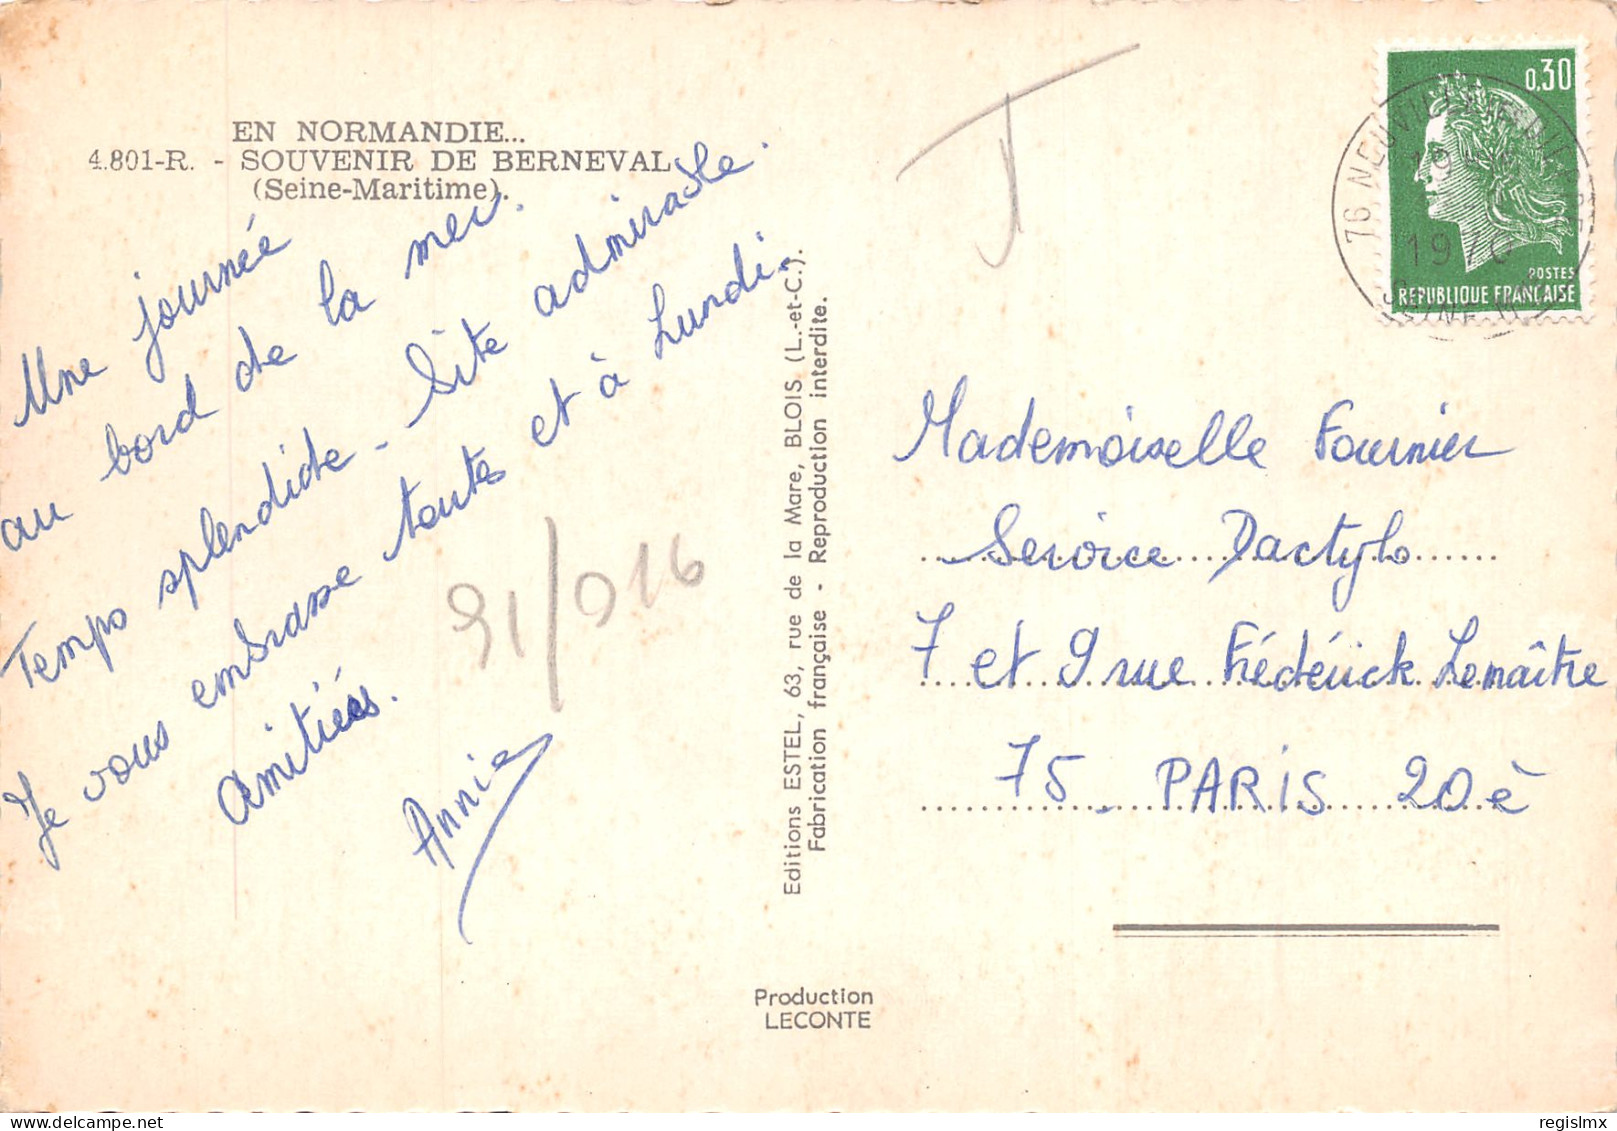 EN NORMANDIE...
4.801-R. - SOUVENIR DE BERNEVAL
(Seine-Maritime).
Une journée
au bord de la mer.
Temps splendide - Site admirable.
Je vous embrasse toutes et à Lundi.
Amitiés.
Annie
91/016
Editions ESTEL, 63, rue de la Mare, BLOIS (L.-et-C.).
Fabrication française - Reproduction interdite.
Production
LECONTE
0,30
POSTES
REPUBLIQUE FRANÇAISE
76 NEUVILLE
1970
SEINE
Mademoiselle Fournier
Service Dactylo
7 et 9 rue Frédérick Lemaître
75 - PARIS 20è
regislmx